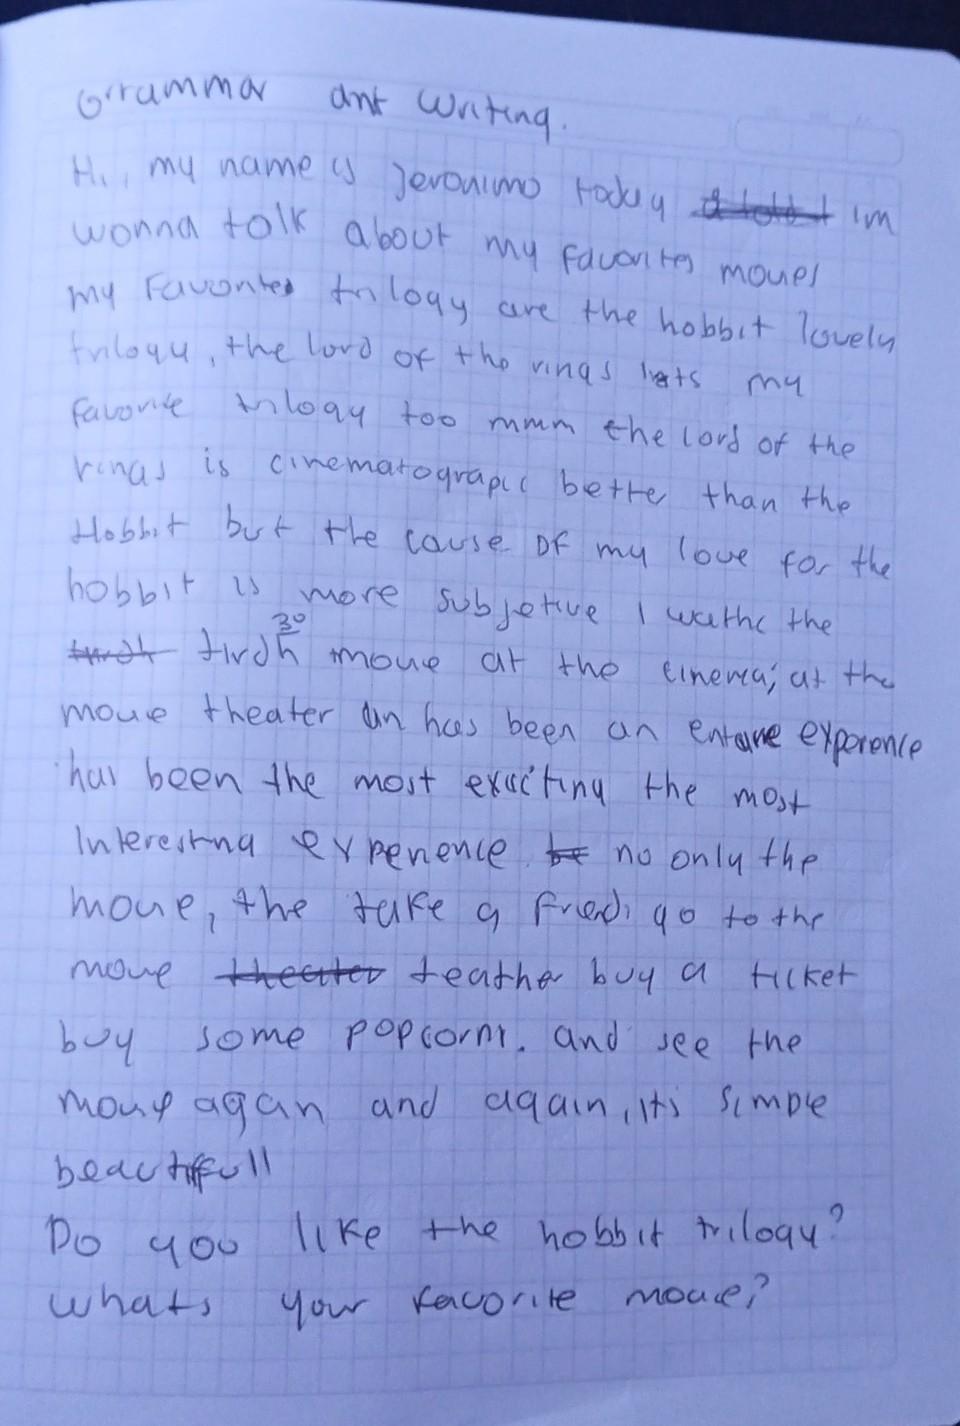 Grammar ant Writing.
Hi, my name is Jeronimo today im
wonna talk about my favorites movies
my Favorites trilogy are the hobbit lovely
trilogy, the lord of the rings lets my
favorite trilogy too mmm the lord of the
rings is cinematograpic bette than the
Hobbit but the cause of my love for the
hobbit is more subjetive I wathc the
30
tirdh movie at the cinema; at the
movie theater an has been an entare experence
has been the most exiciting the most
Interesting experience no only the
movie, the take a friend go to the
movie teather buy a ticket
buy some popcorm. and see the
movie again and again, its simple
beautiffull
Do you like the hobbit trilogy?
whats your favorite movie?